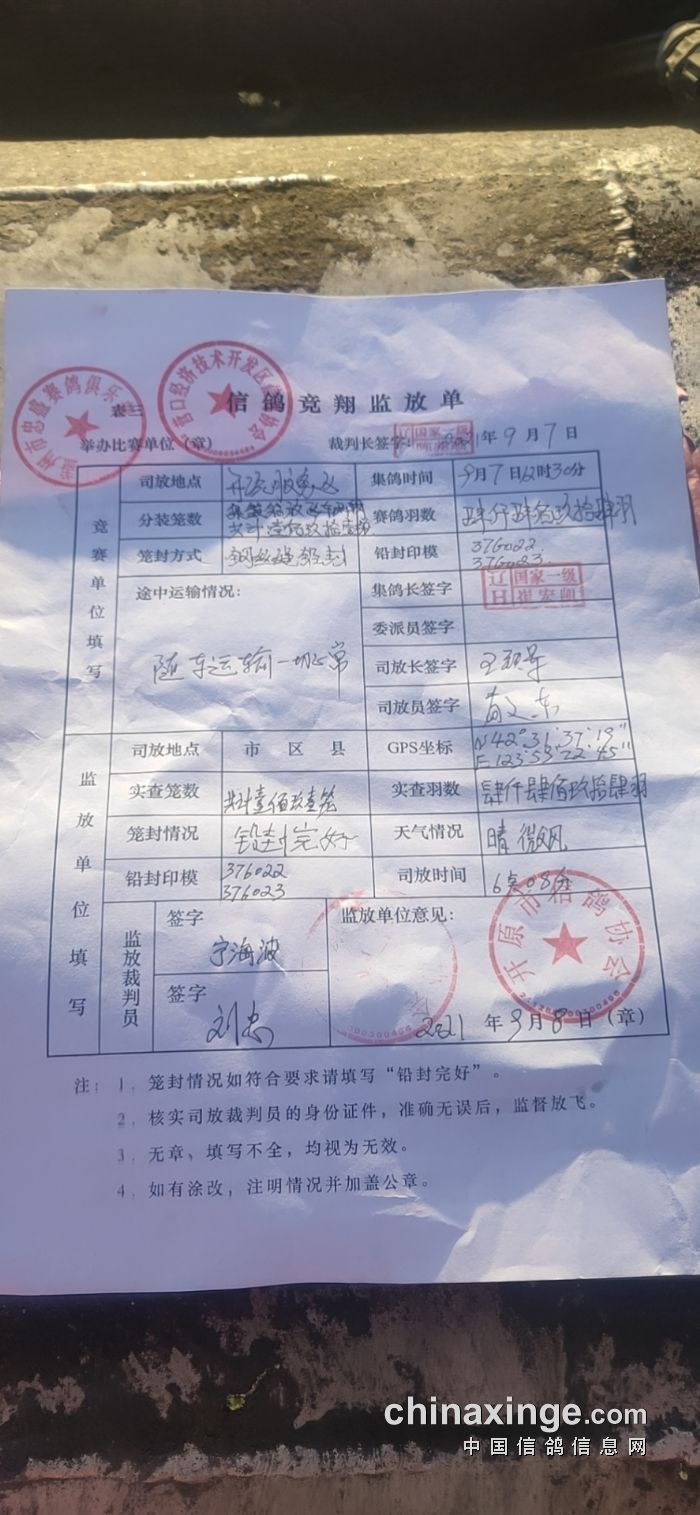 表三
信鸽竞翔监放单
举办比赛单位(章)
裁判长签字: 2021年9月7日
国家一级
营口经济技术开发区信鸽协会
市忠盛赛鸽俱乐
竞赛单位填写
司放地点
集鸽时间 9月7日12时30分
分装笼数
赛鸽羽数 肆仟肆佰玖拾肆羽
笼封方式
铅封印模 376022
376023
途中运输情况:
随车运输一切正常
集鸽长签字 辽 国家一级
H 崔宏
委派员签字
司放长签字
司放员签字
监放单位填写
司放地点 市 区 县
GPS坐标 N42°:31':37':19"
E:123:53:22:45"
实查笼数 共计壹佰玖壹笼
实查羽数 肆仟肆佰玖拾肆羽
笼封情况 铅封完好
天气情况 晴 微风
铅封印模 376022
376023
司放时间 6点08分
监放裁判员
签字
宁海波
签字
刘忠
监放单位意见:
开原市信鸽协会
2021年9月8日(章)
注: 1、笼封情况如符合要求请填写“铅封完好”。
2、核实司放裁判员的身份证件,准确无误后,监督放飞。
3、无章、填写不全,均视为无效。
4、如有涂改,注明情况并加盖公章。
chinaxinge.com
中国信鸽信息网